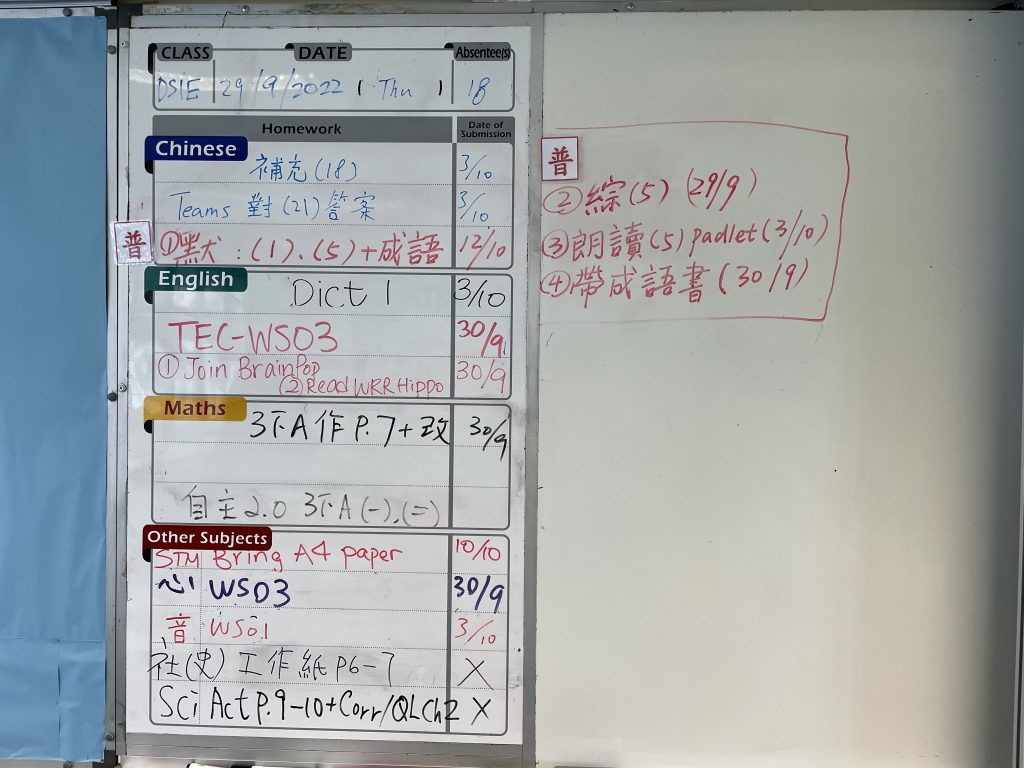 CLASS DATE Absentee(s)
DSIE 29/9/2022 Thu 18
Homework Date of Submission
Chinese
補充(18) 3/10
Teams 對(21)答案 3/10
普 ①默犬:(1)、(5)+成語 12/10
English
Dict 1 3/10
TEC-WS03 30/9
①Join BrainPop
②Read WRR Hippo 30/9
Maths
3下A作P.7+改 30/9
自主2.0 3下A(一).(二)
Other Subjects
STM Bring A4 paper 10/10
心 WS03 30/9
音 WS01 3/10
社(史)工作紙P6-7 X
Sci Act P.9-10+Corr/QL Ch2 X
普
②綜(5) (29/9)
③朗讀(5) padlet(3/10)
④帶成語書(30/9)